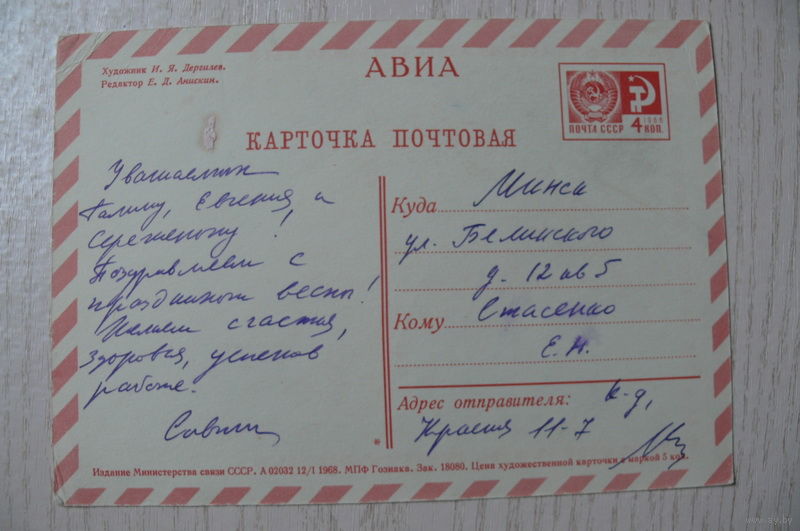 Художник И. Я. Дергилев.
Редактор Е. Д. Анискин.
АВИА
ПОЧТА СССР
1966
4 КОП.
КАРТОЧКА ПОЧТОВАЯ
Уважаемых
Галину, Евгения, и
Сереженьку!
Поздравляем с
праздником весны!
Желаем счастья,
здоровья, успехов
работе.
Куда Минск
ул. Белинского
д. 12 кв 5
Кому Стасенко
Е. Н.
Адрес отправителя: к-д,
Красная 11-7
* Издание Министерства связи СССР. А 02032 12/I 1968. МПФ Гознака. Зак. 18080. Цена художественной карточки с маркой 5 коп.
www.ay.by